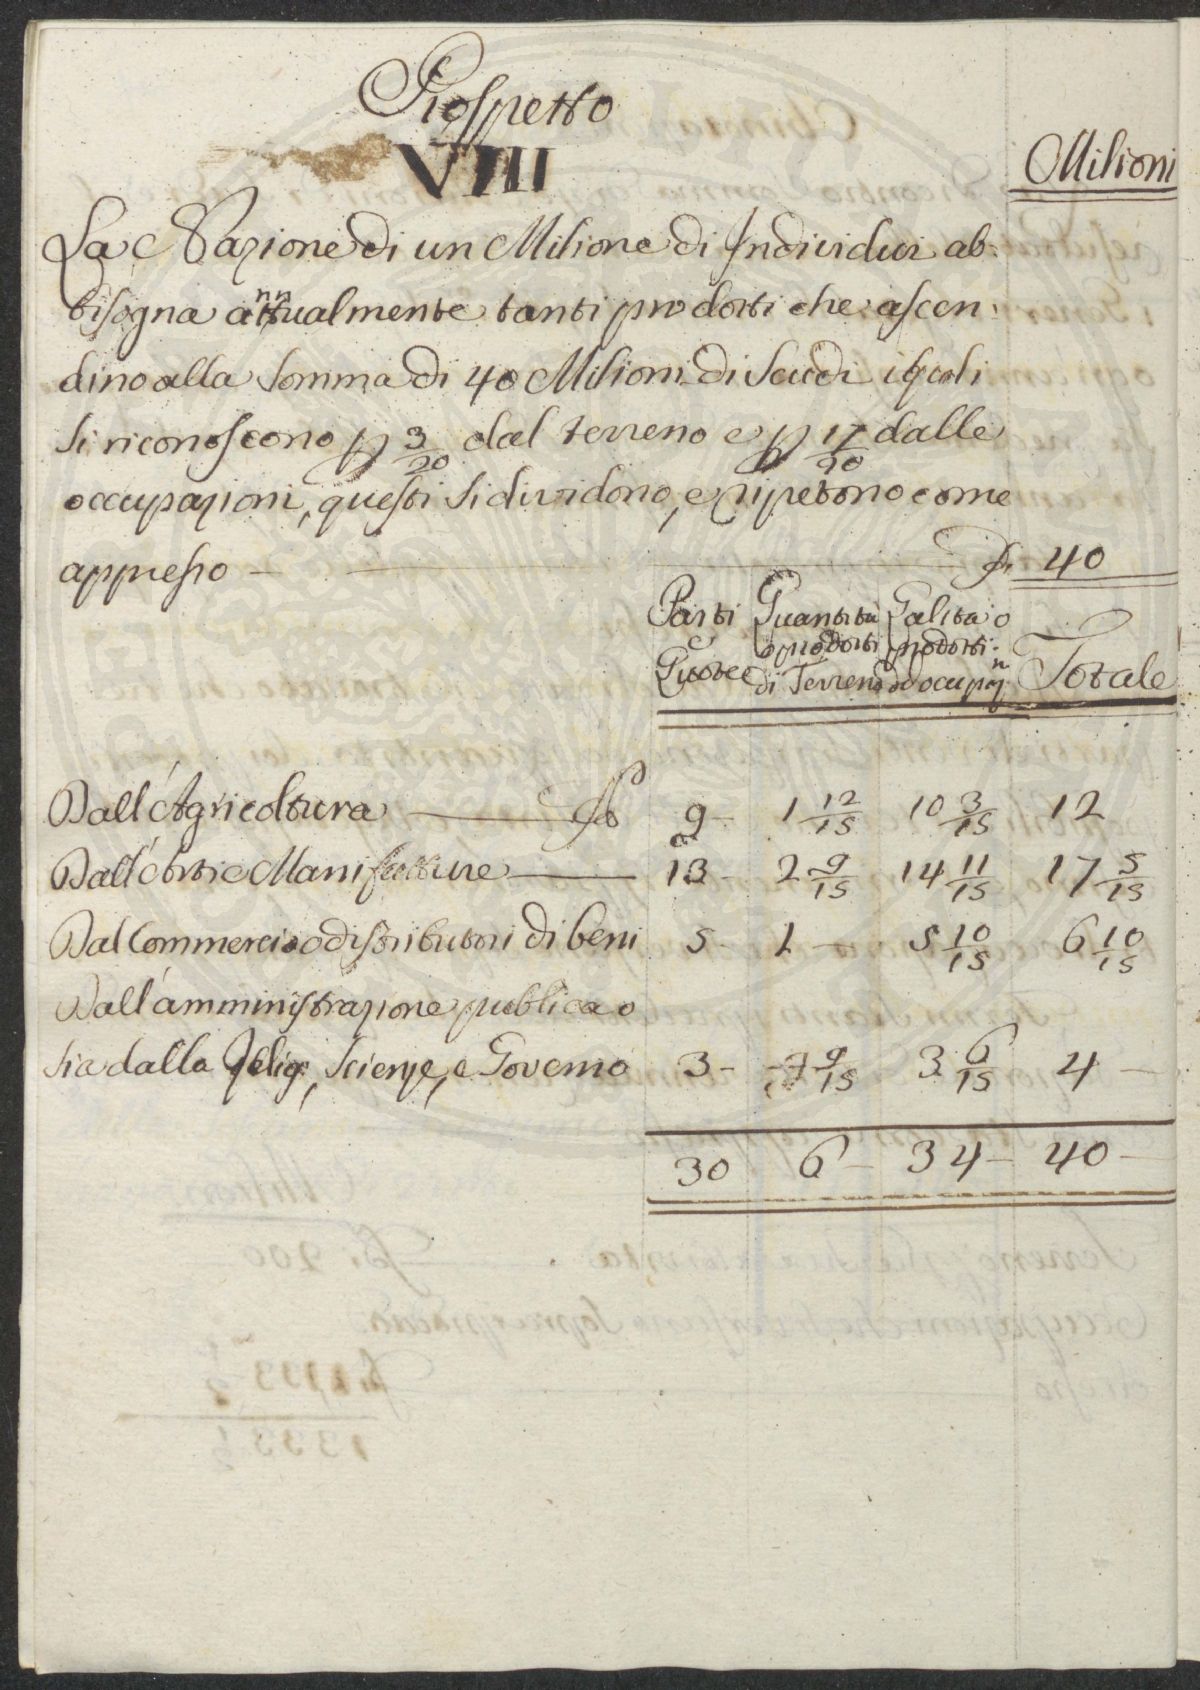 Prospetto
VIII
Milioni
La Nazione di un Milione di Individui ab:
bisogna annualmente tanti prodotti che ascen:
dino alla somma di 40 Milioni di Scudi i quali
si riconoscono p 3/20 dal terreno e p 17/20 dalle
occupazioni, questi si dividono, e ripetono come
appresso — 40
Parti e Quote
Quantità o prodotti di Terreno
Qalita o prodotti d'occupazn
Totale
Dall'Agricoltura — 9 - 1 12/15 10 3/15 12
Dall'Arti e Manifatture — 13 - 2 9/15 14 11/15 17 5/15
Dal Commercio o distributori di beni 5 - 1 — 5 10/15 6 10/15
Dall'amministrazione publica o
sia dalla Relige, Scienze, e Governo 3 - - 9/15 3 6/15 4 —
30 6 - 34 - 40 -